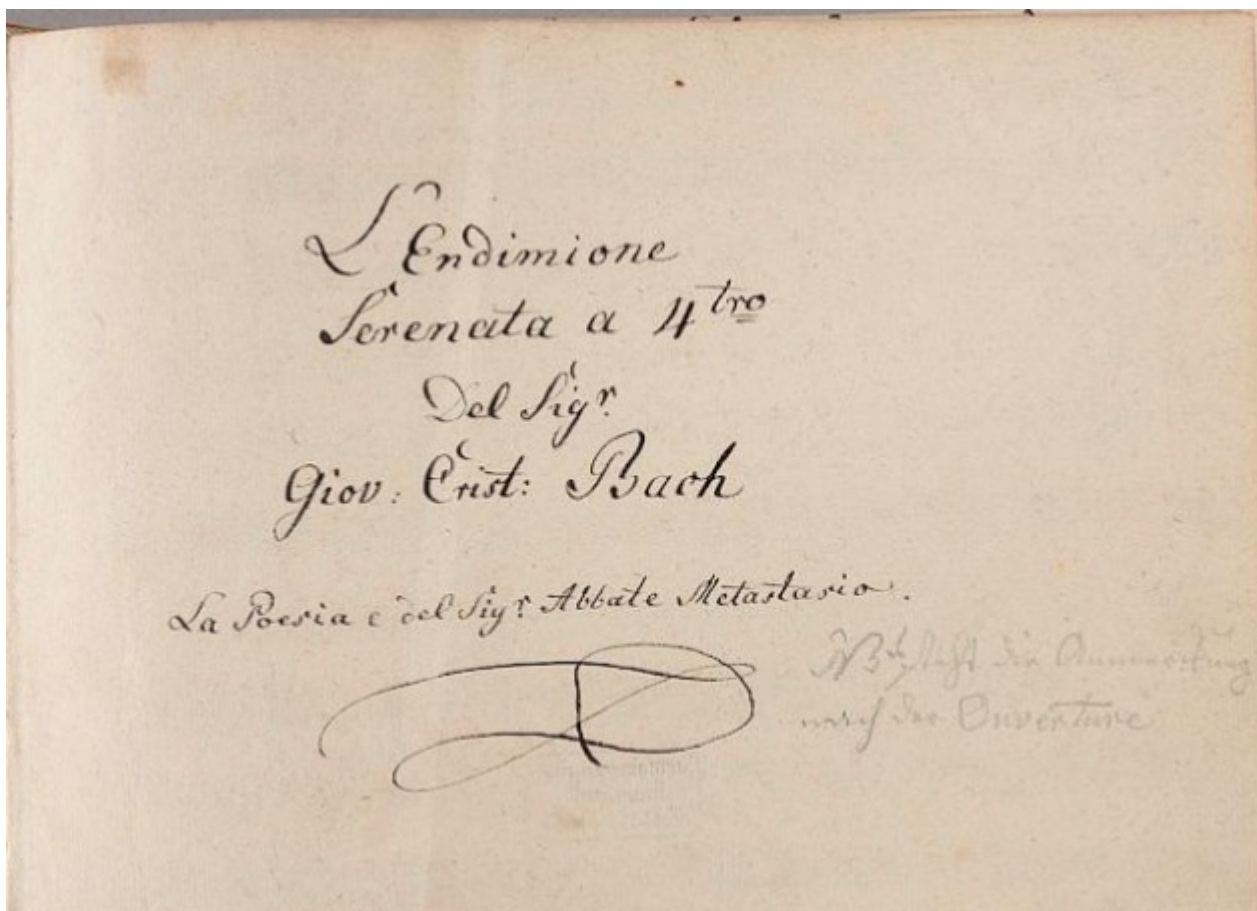 L'Endimione
Serenata a 4tro
Del Sigr.
Giov: Crist: Bach
La Poesia e del Sigr. Abbate Metastasio.
die Anmerkung
nach der Ouverture